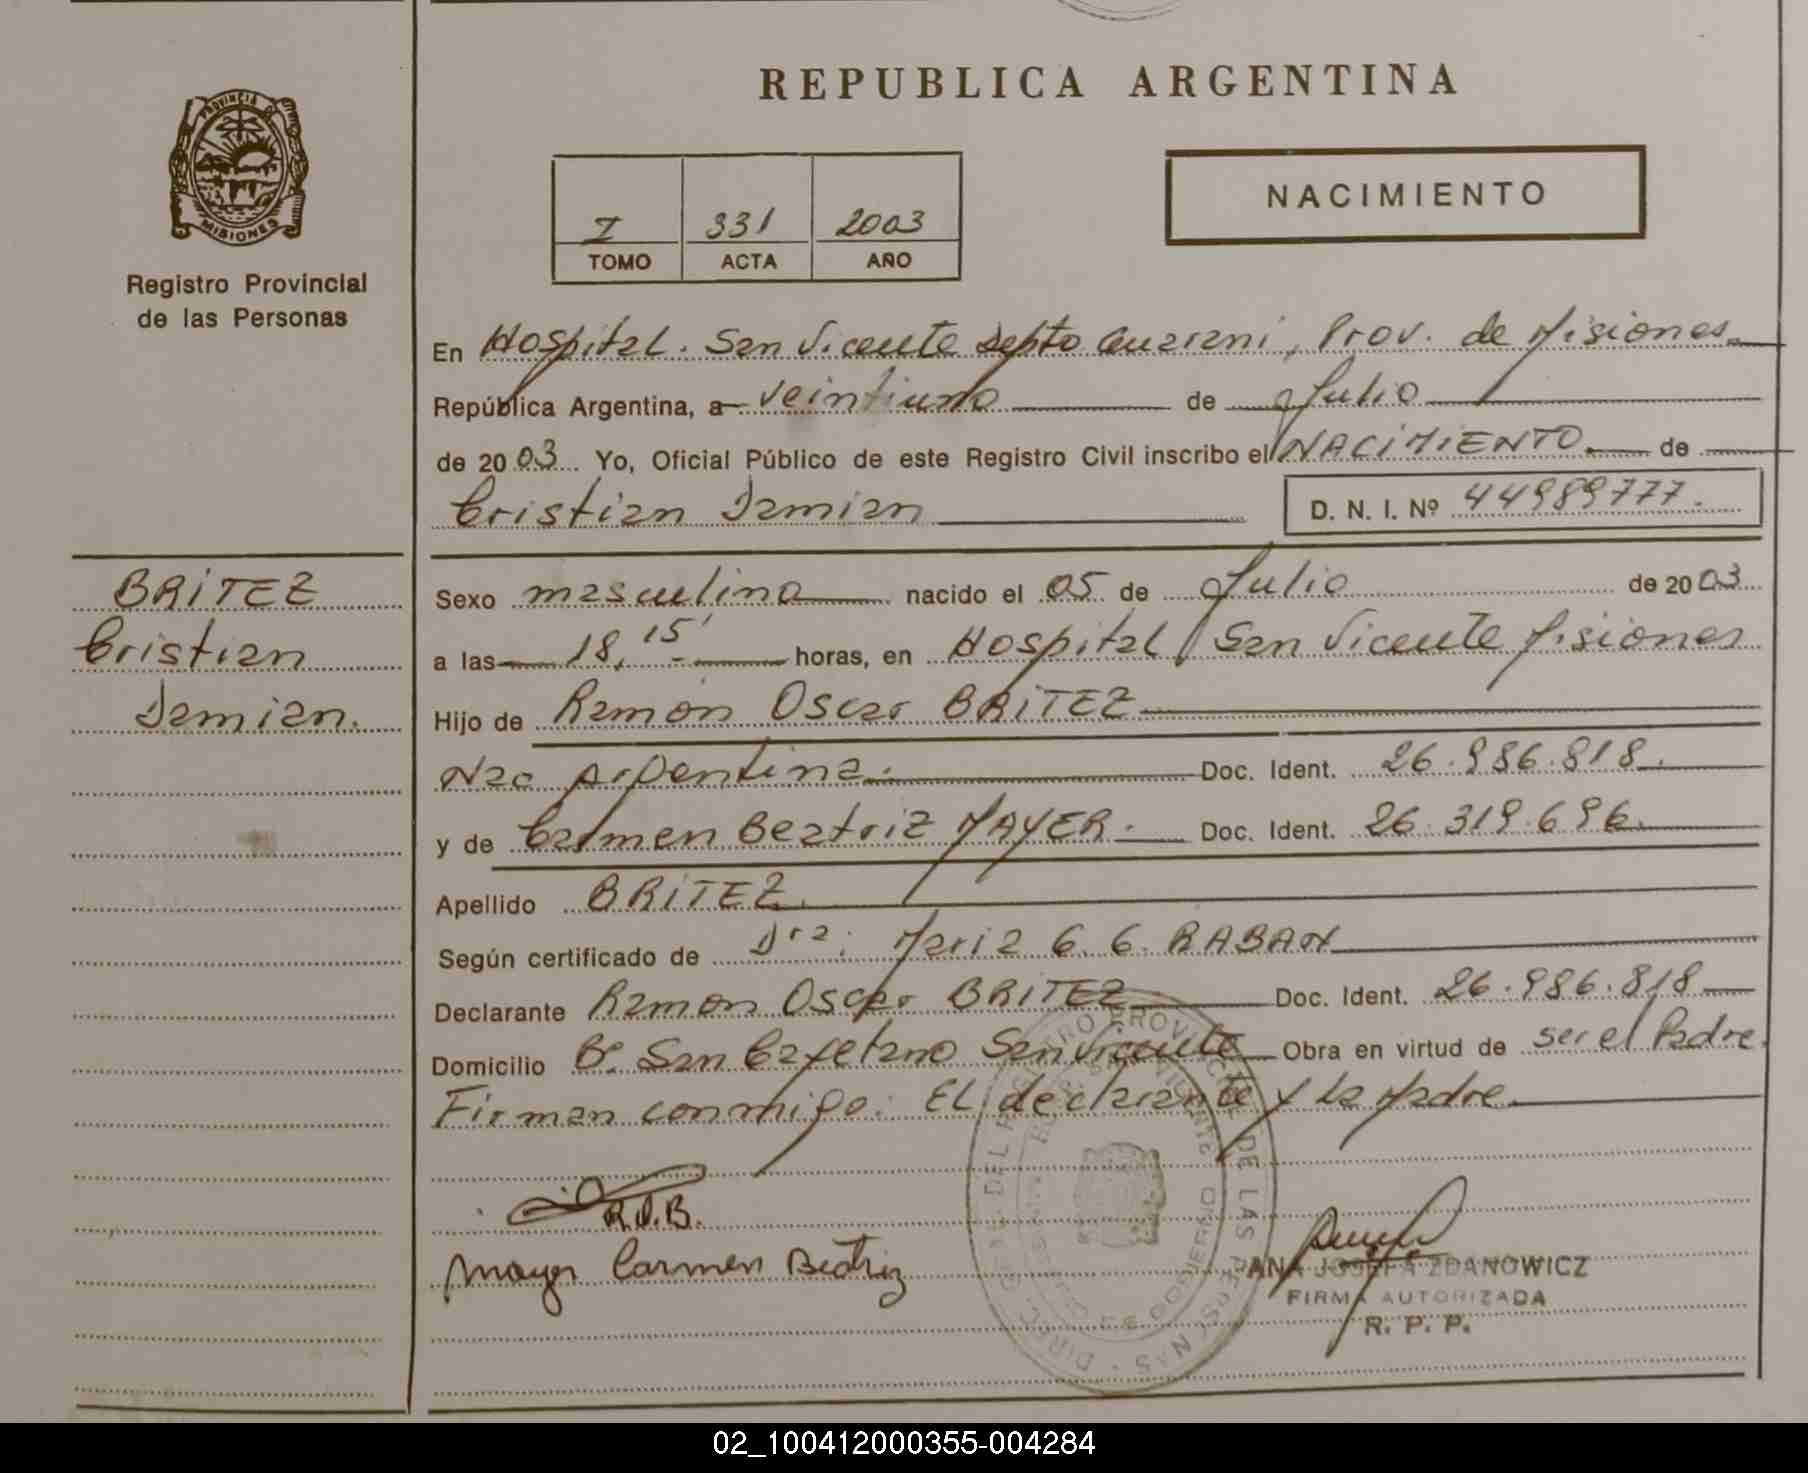 REPUBLICA ARGENTINA
PROVINCIA DE
MISIONES
Registro Provincial
de las Personas
I 331 2003
TOMO ACTA AÑO
NACIMIENTO
En Hospital. San Vicente Depto Guarani, Prov. de Misiones
República Argentina, a veintiuno de Julio
de 2003 Yo, Oficial Público de este Registro Civil inscribo el NACIMIENTO de
Cristian Damian D. N. I. Nº 44989777.
BRITEZ
Cristian
Damian.
Sexo masculino nacido el 05 de Julio de 2003
a las 18,15' horas, en Hospital San Vicente Misiones
Hijo de Ramon Oscar BRITEZ
Nac Argentina. Doc. Ident. 26.986.818.
y de Carmen Beatriz MAYER. Doc. Ident. 26.319.696.
Apellido BRITEZ.
Según certificado de Dra. Maria G. G. RABAN
Declarante Ramon Oscar BRITEZ Doc. Ident. 26.986.818
Domicilio Bº San Cayetano San Vicente Obra en virtud de ser el Padre.
Firman conmigo: El declarante y la Madre.
R.O.B.
Mayer Carmen Beatriz
ANA JOSEFA ZDANOWICZ
FIRMA AUTORIZADA
R. P. P.
02_100412000355-004284